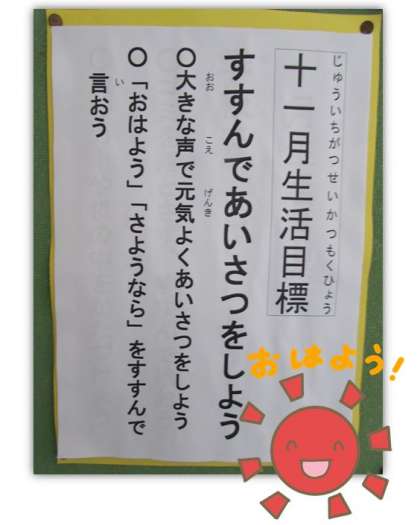 じゅういちがつせいかつもくひょう
十一月生活目標
すすんであいさつをしよう
おお こえ げんき
○大きな声で元気よくあいさつをしよう
い
○「おはよう」「さようなら」をすすんで
言おう
おはよう!